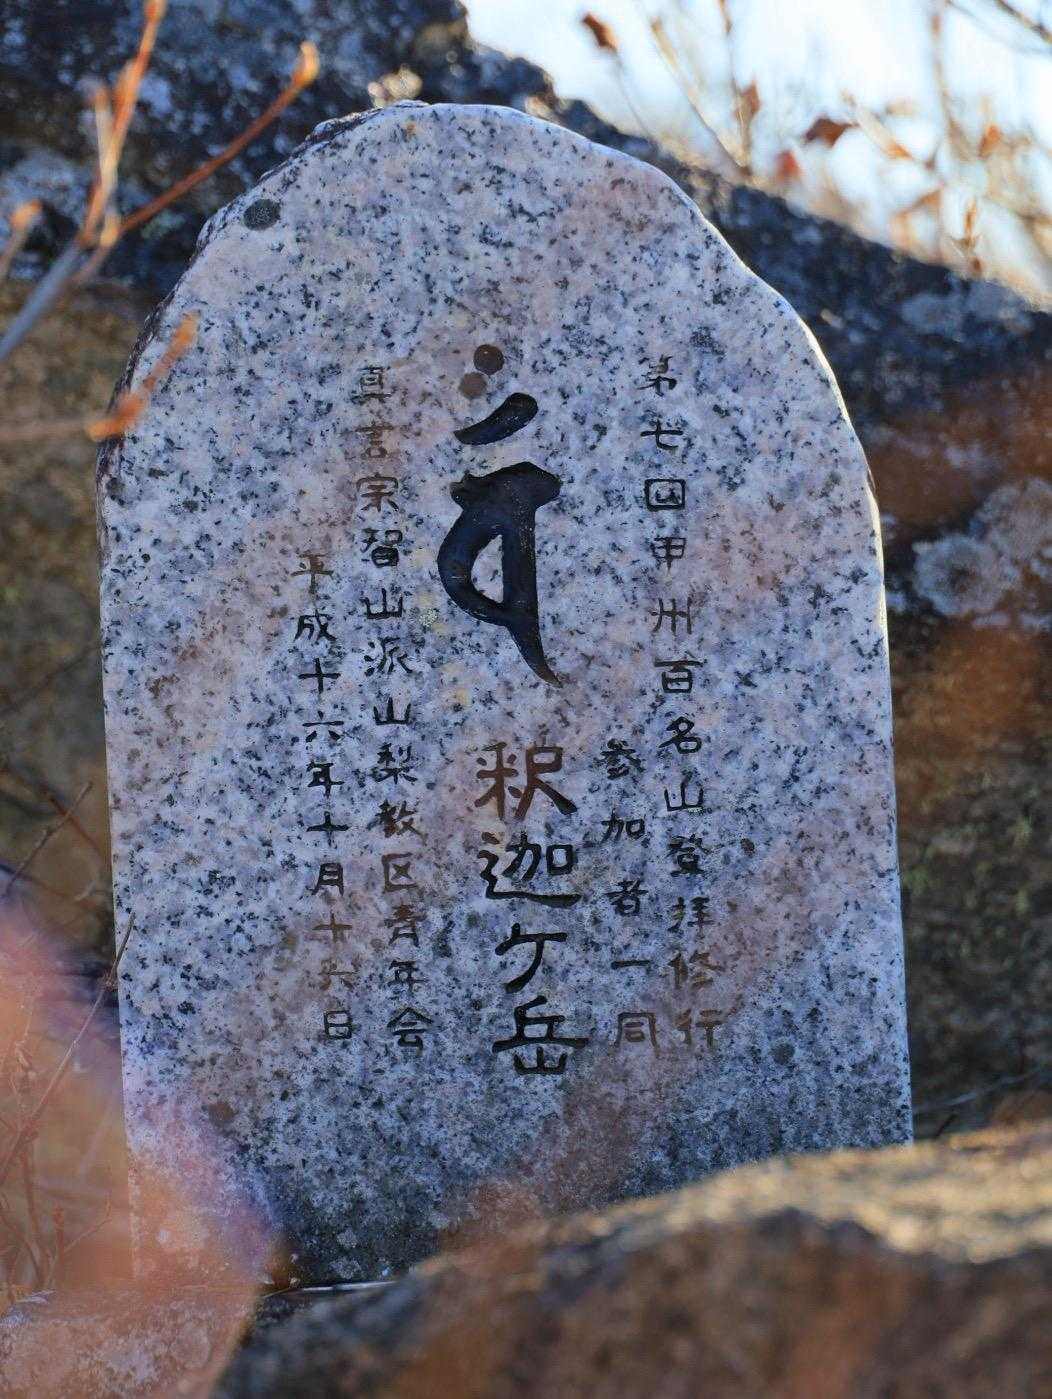 第七回甲州百名山登拝修行
参加者一同
釈迦ケ岳
真言宗智山派山梨教区青年会
平成十六年十月十六日